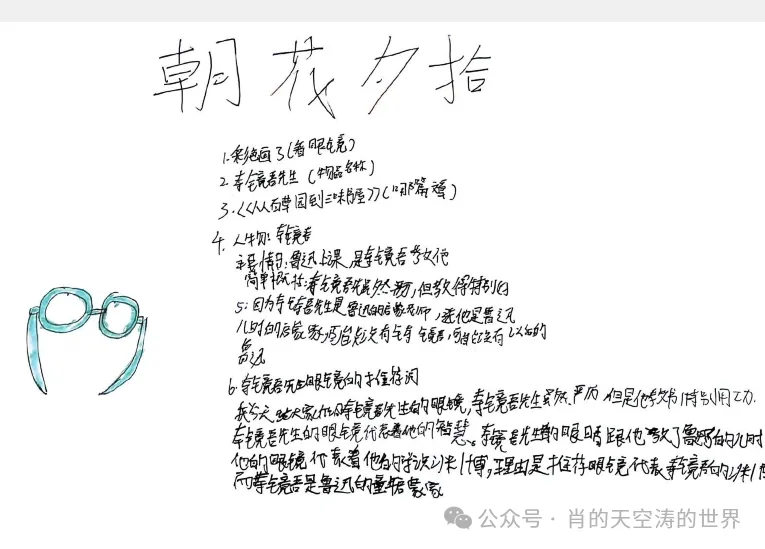 朝花夕拾
1.彩绘画了(着眼镜)
2.寿镜吾先生(物品名称)
3.《从百草园到三味书屋》(哪篇)
4.人物:寿镜吾
主要情节:鲁迅上课,是寿镜吾教他
简单概括:寿镜吾虽然,但教得特别
5:因为寿镜吾先生是鲁迅的启蒙老师,他是鲁迅
儿时的启蒙,可能没有寿镜吾,可能没有以后的
鲁迅
6.寿镜吾先生眼镜的推荐词
我今天给大家的寿镜吾先生的眼镜,寿镜吾先生虽然严厉但是他教书特别用功.
寿镜吾先生的眼镜代表着他的智慧。寿镜吾先生的眼睛跟他教了鲁迅的儿时
他的眼镜代表着他的学识渊博,理由是推荐眼镜代表寿镜吾的渊博
而寿镜吾是鲁迅的启蒙
公众号·肖的天空涛的世界